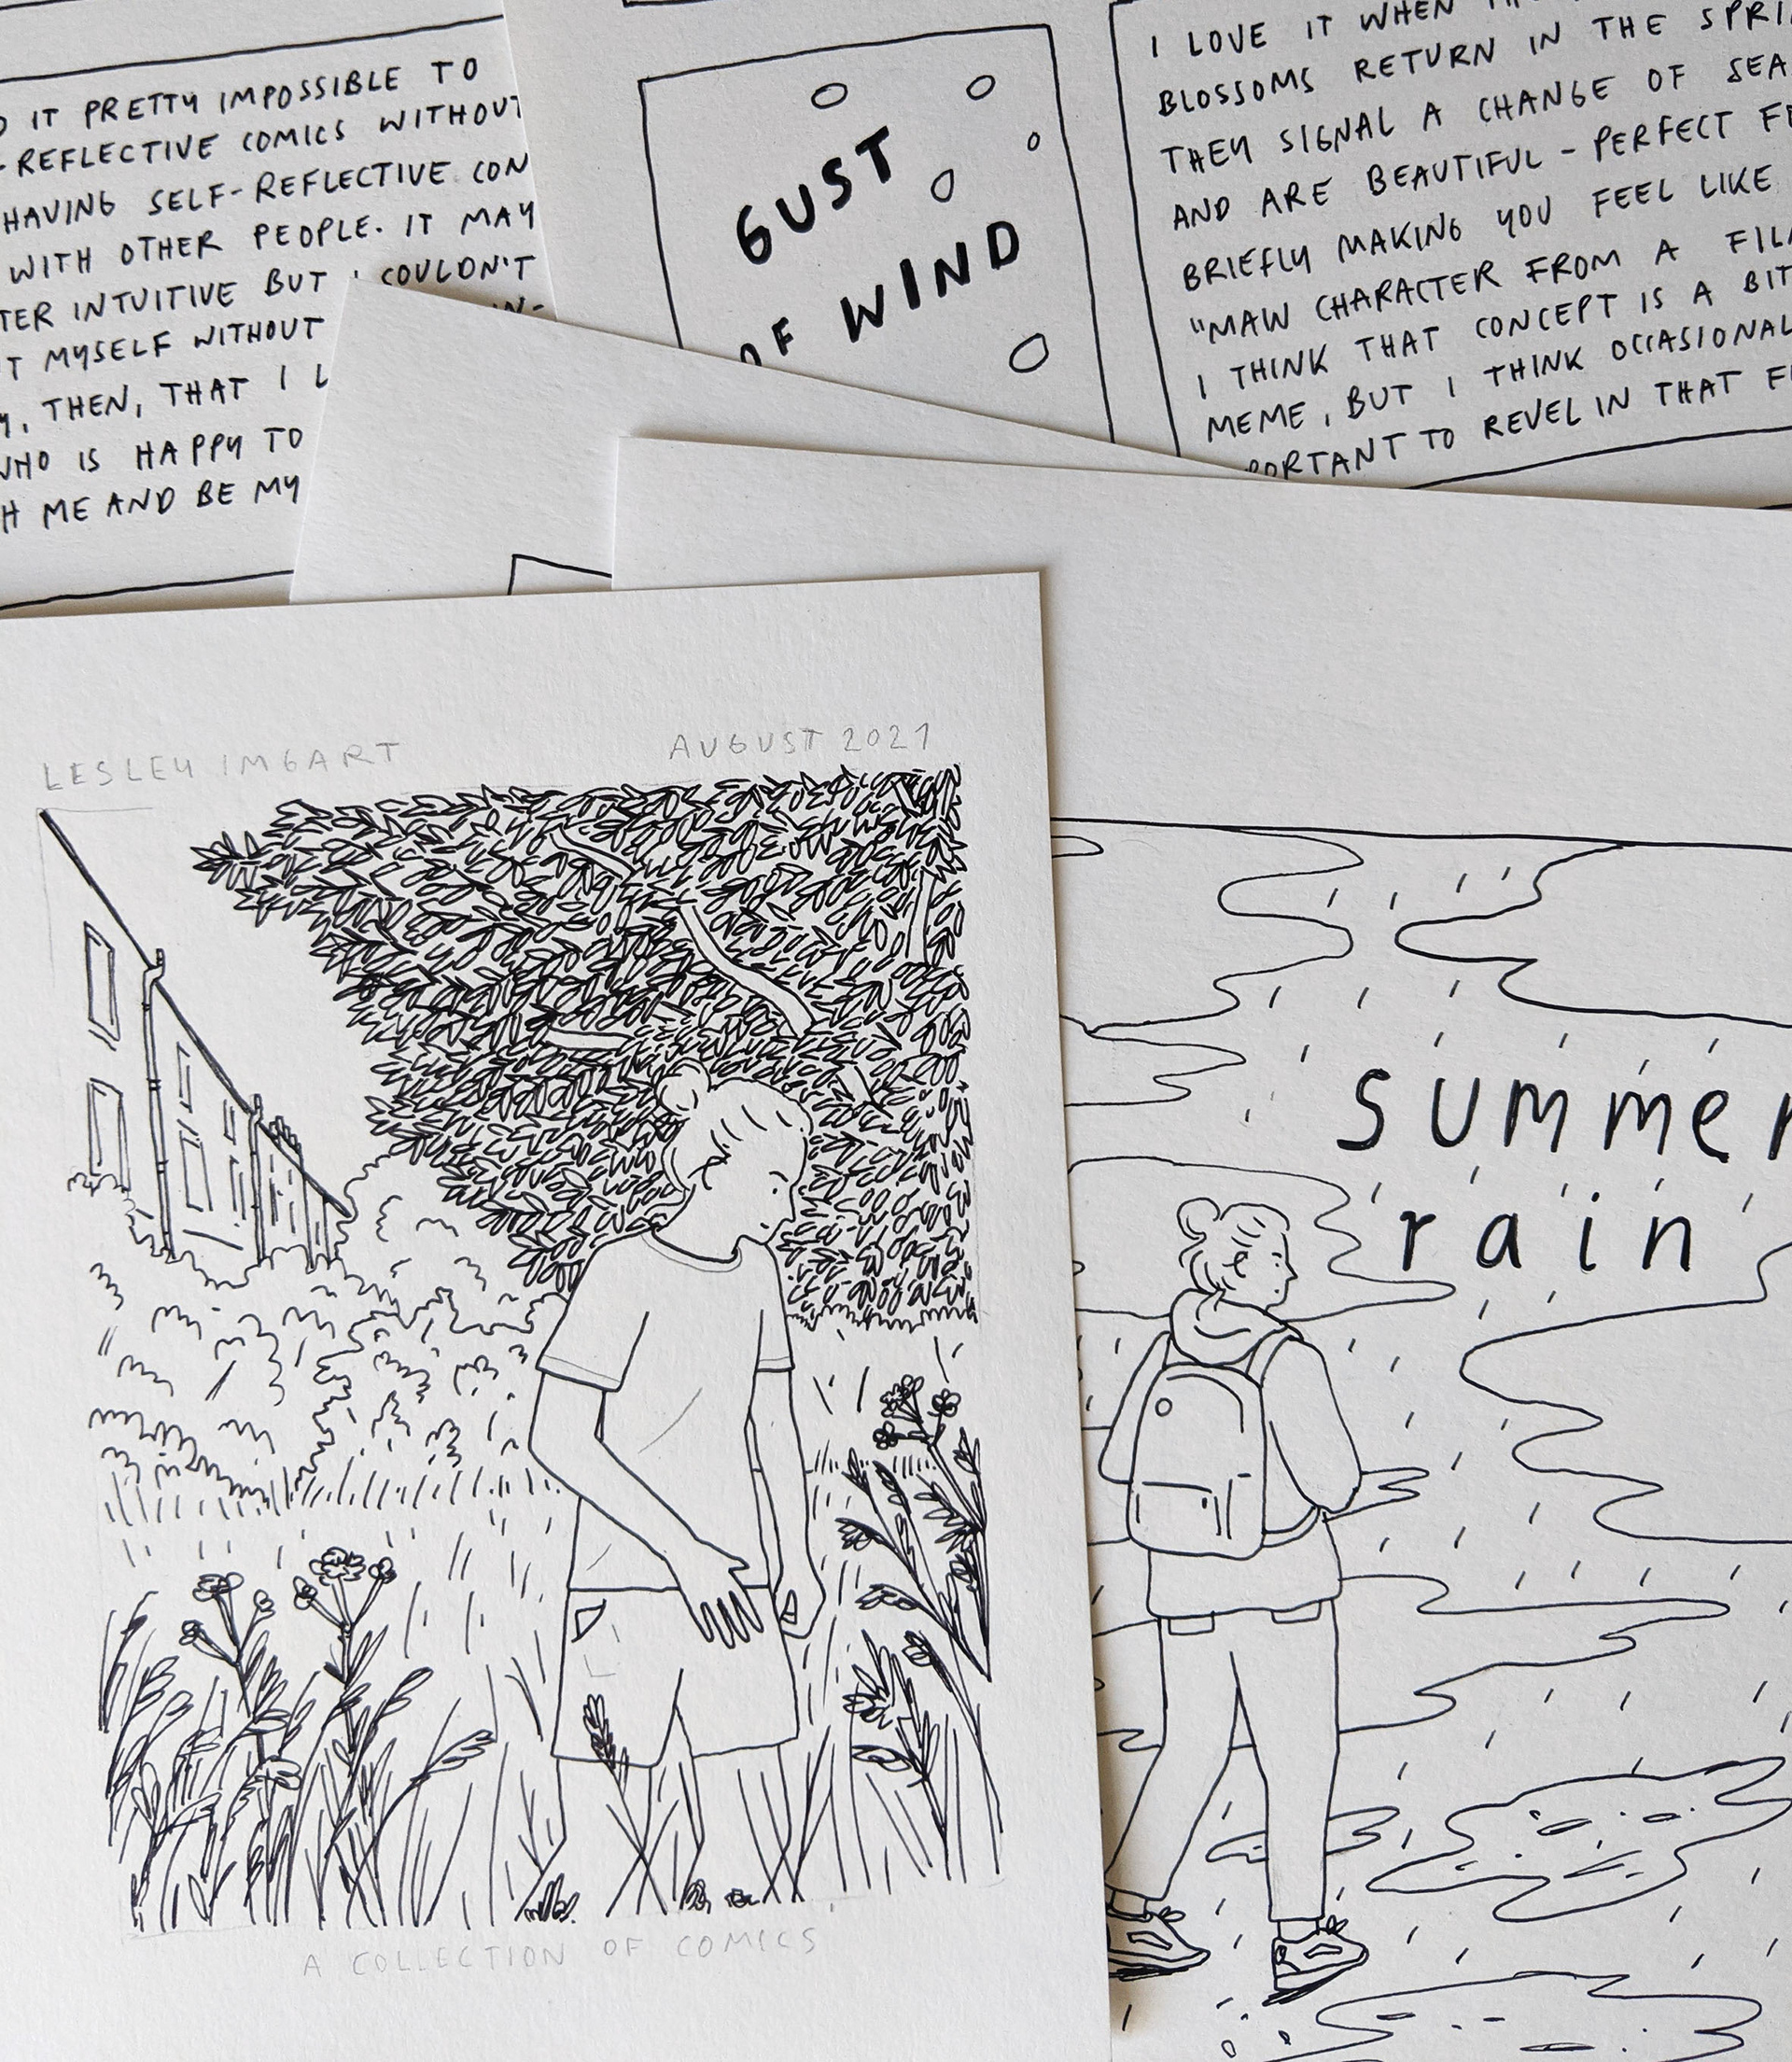 IT PRETTY IMPOSSIBLE TO
-REFLECTIVE COMICS WITHOUT
HAVING SELF-REFLECTIVE CON
WITH OTHER PEOPLE. IT MAY
TER INTUITIVE BUT I COULDN'T
T MYSELF WITHOUT IN-
, THEN, THAT I L
WHO IS HAPPY TO
H ME AND BE MY
GUST
OF WIND
I LOVE IT WHEN
BLOSSOMS RETURN IN THE SPRI
THEY SIGNAL A CHANGE OF SEA
AND ARE BEAUTIFUL - PERFECT F
BRIEFLY MAKING YOU FEEL LIKE
"MAW CHARACTER FROM A FIL
I THINK THAT CONCEPT IS A BIT
MEME, BUT I THINK OCCASIONAL
PORTANT TO REVEL IN THAT F
LESLEY IMGART
AUGUST 2021
A COLLECTION OF COMICS
summer
rain